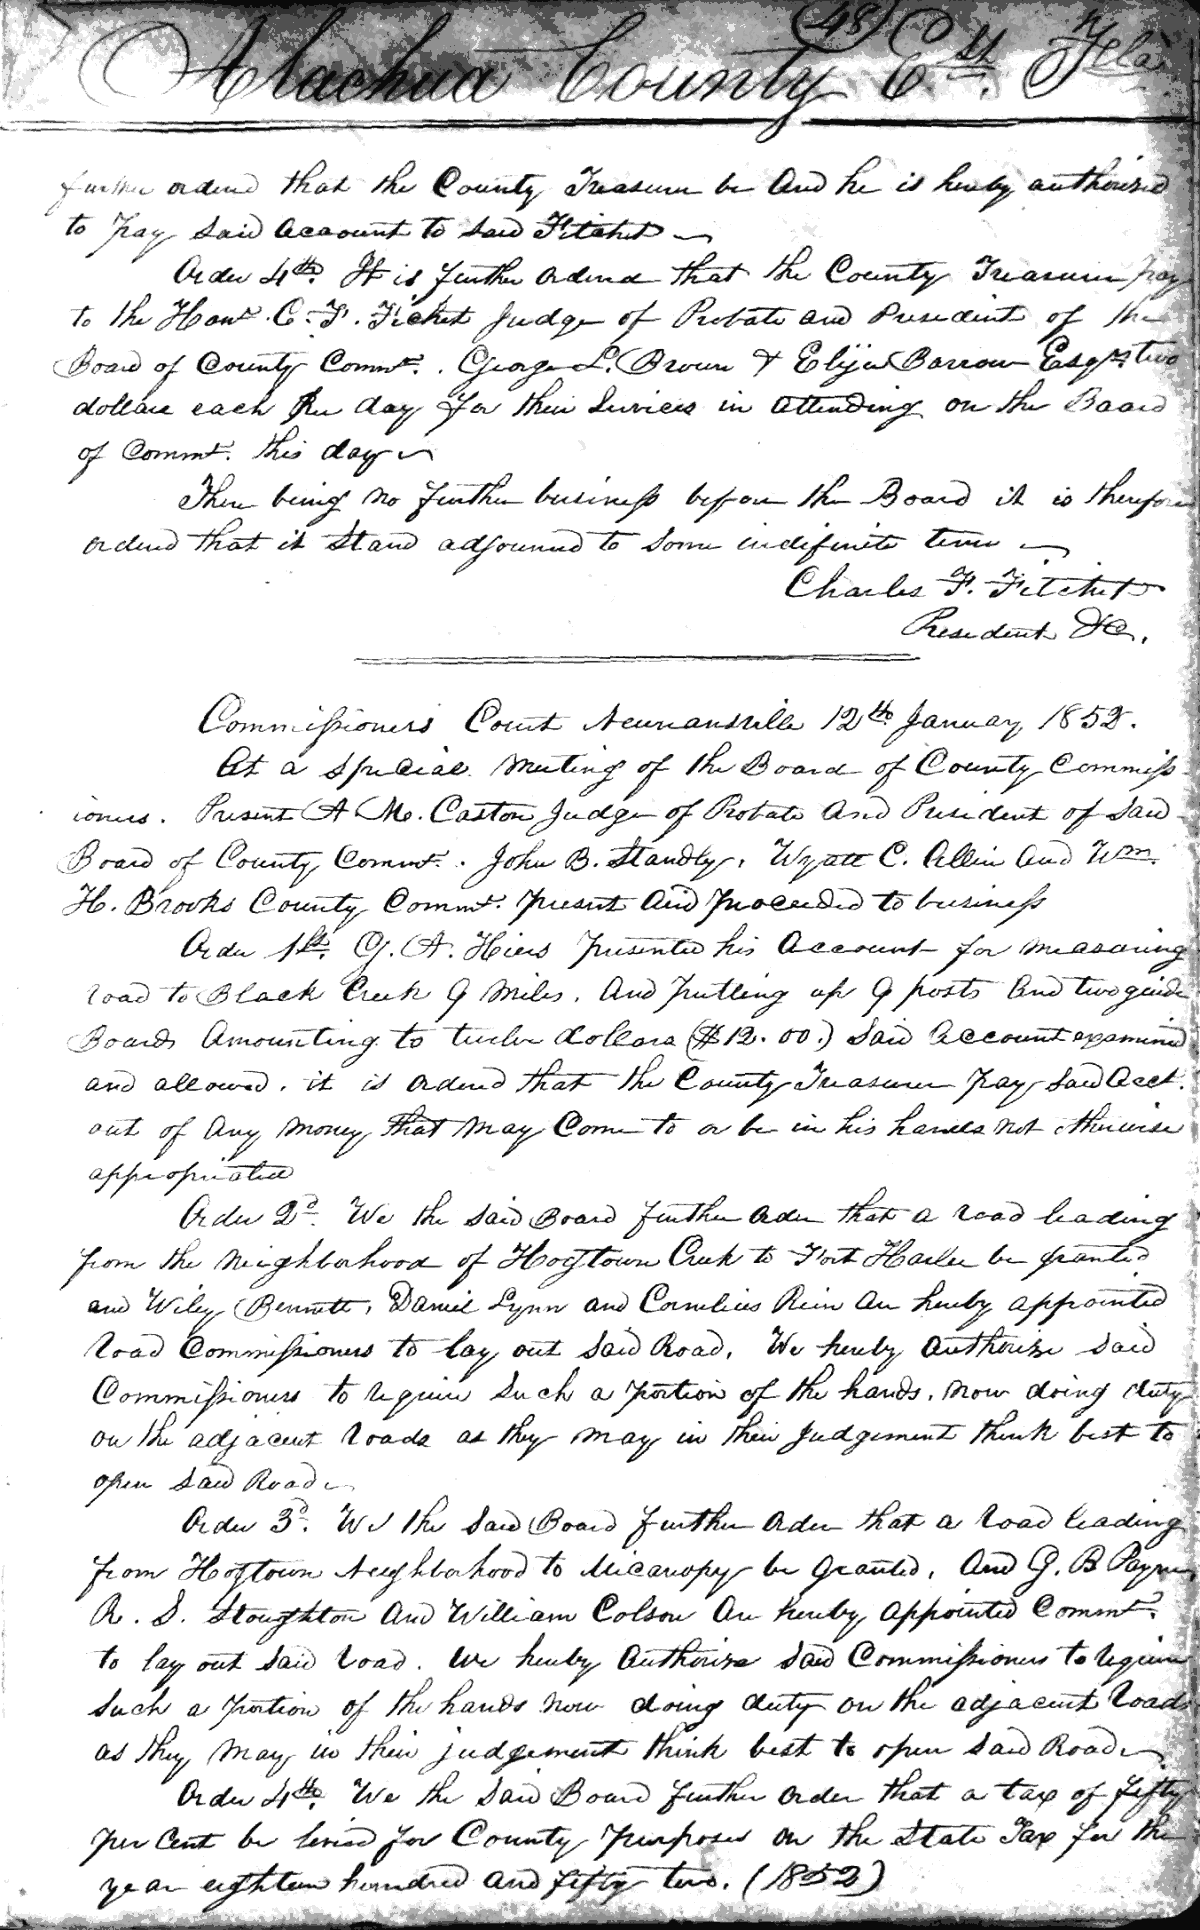 (48)
Alachua County Ct. Fla
further ordered that the County Treasurer be And he is hereby authorised
to pay Said Account to said Fitchet
Order 4th. It is further ordered that the County Treasurer pay
to the Honl. C. F. Fitchet Judge of Probate and President of the
Board of County Commrs. George L. Brown & Elijah Barrow Esqrs. two
dollars each Per day for their Services in attending on the Board
of Commrs. this day
There being no further business before the Board it is therefore
ordered that it Stand adjourned to Some indefinite time
Charles F. Fitchet
President &c.
Commissioners Court Newnansville 12th January 1852.
At a special Meeting of the Board of County Commiss
ioners. Present A M. Caston Judge of Probate And President of Said
Board of County Commrs. John B. Standly, Wyatt C. Allin And Wm.
H. Brooks County Commrs. present And proceeded to business
Order 1st. G. A. Hiers presented his Account for measuring
road to Black Creek 9 Miles, And putting up 9 posts And two guide
Boards Amounting to twelve dollars ($12.00.) Said Account examined
and allowed. it is ordered that the County Treasurer pay Said Acct.
out of Any Money that may Come to or be in his hands not otherwise
appropriated
Order 2d. We the Said Board further order that a road leading
from the Neighborhood of Hogtown Creek to Fort Harlee be granted
and Wiley Bennett, Daniel Lynn and Cornelius Rain Are hereby appointed
road Commissioners to lay out Said Road, We hereby Authorise Said
Commissioners to require Such a portion of the hands, now doing duty
on the adjacent roads as they may in their Judgement think best to
open Said Road
Order 3d. We the Said Board further order that a road leading
from Hogtown Neighborhood to Micanopy be Granted, And G. B Payne
R. S. Stoughton And William Colson Are hereby Appointed Commrs.
to lay out Said road. We hereby Authorise Said Commissioners to require
Such a portion of the hands now doing duty on the adjacent roads
as they may in their judgement think best to open Said Road
Order 4th. We the Said Board further order that a tax of fifty
per Cent be levied for County purposes on the State Tax for the
year eighteen hundred and fifty two. (1852)